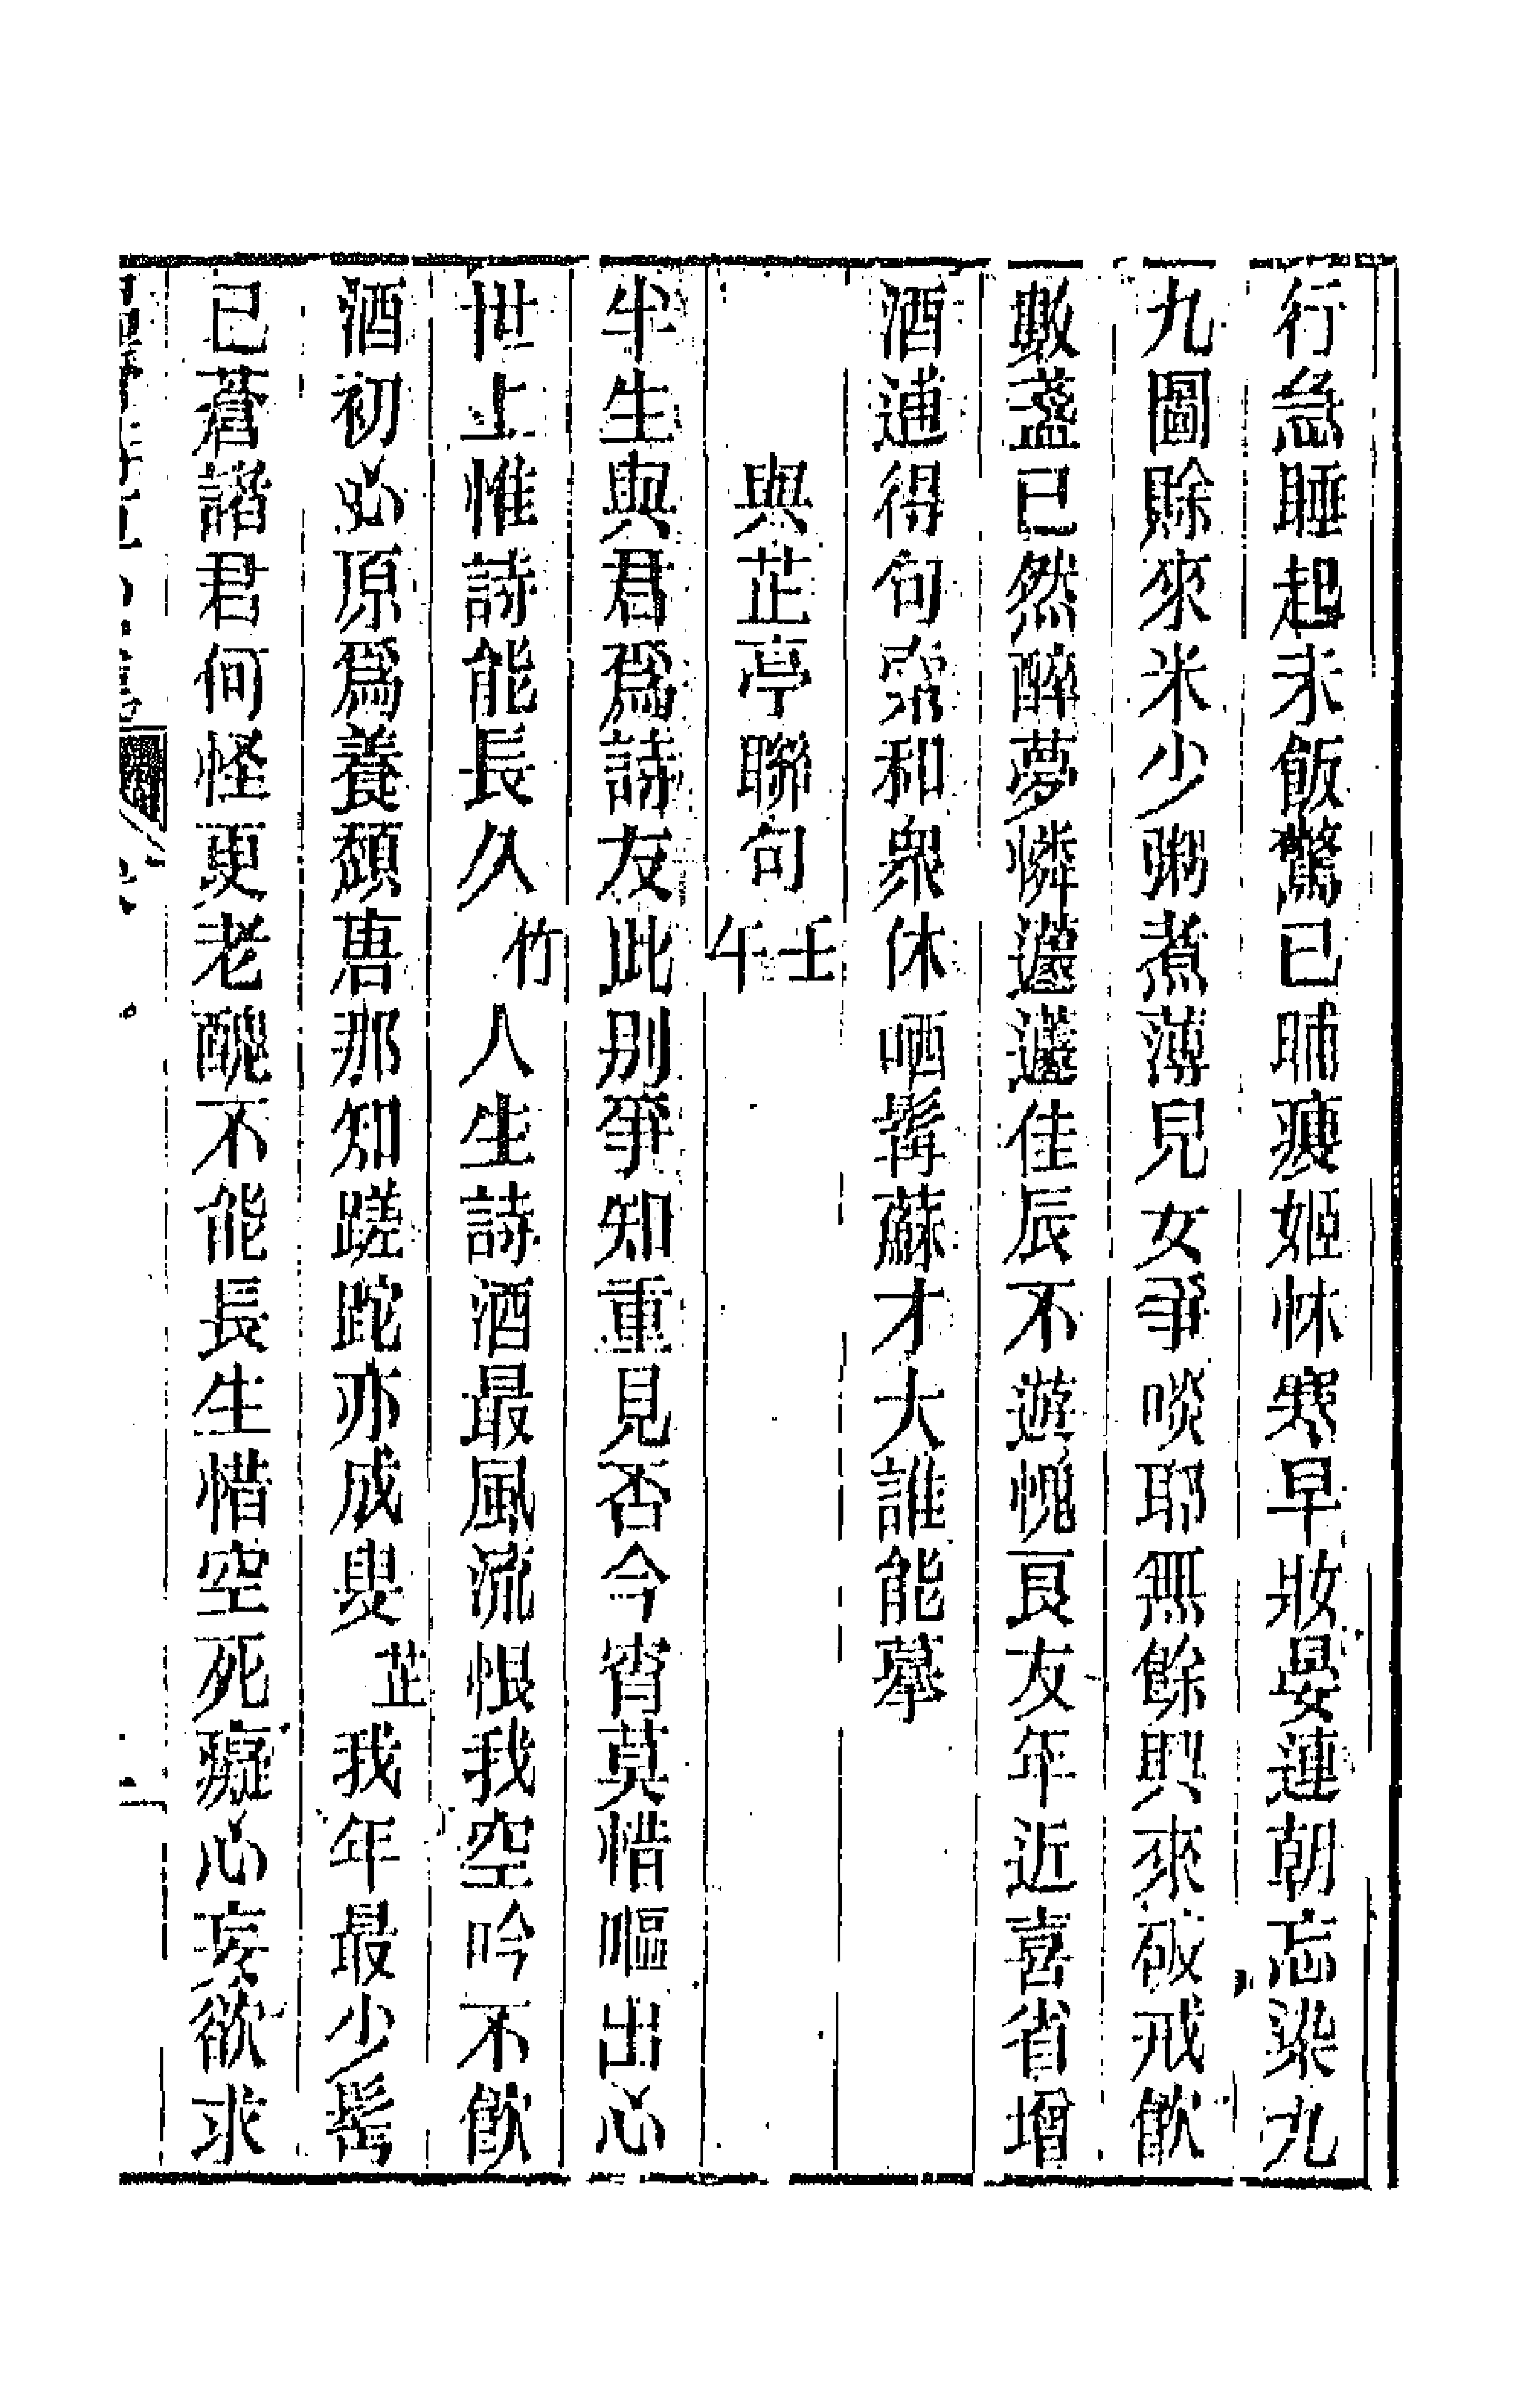 行急睡起未飯驚已晡瘦姬怵寒早妝晏連朝忘染九
九圖賒來米少粥煮薄兒女爭啖耶無餘興來破戒飲
數盞已然醉夢憐蘧蘧佳辰不遊愧良友年近喜省增
酒逋得句索和衆休哂髯蘇才大誰能摹
與芷亭聯句壬午
半生與君爲詩友此别爭知重見否今宵莫惜嘔出心
世上惟詩能長久竹人生詩酒最風流恨我空吟不飲
酒初心原爲養頹唐那知蹉跎亦成叟芷我年最少髩
已蒼謟君何怪更老醜不能長生惜空死癡心妄欲求